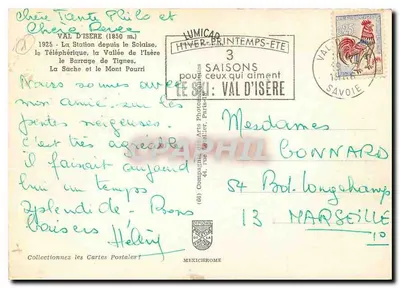 Chère Tante Philo et
Chère Renée
VAL D'ISÈRE (1850 m.)
1925 - La Station depuis le Solaise,
le Téléphérique, la Vallée de l'Isère
le Barrage de Tignes.
La Sache et le Mont Pourri
Nous sommes avec
mon amie, sur les
pentes neigeuses.
c'est très agréable
il faisait aujourd
hui un temps
splendide. Bons
baisers
Hélène
Collectionnez les Cartes Postales
LUMICAP
HIVER-PRINTEMPS-ETE
3
SAISONS
pour ceux qui aiment
LE SKI: VAL D'ISÈRE
VAL
SAVOIE
Mesdames
BONNARD
54 Bd. Longchamp
13 MARSEILLE
MEXICHROME
CPArama.com